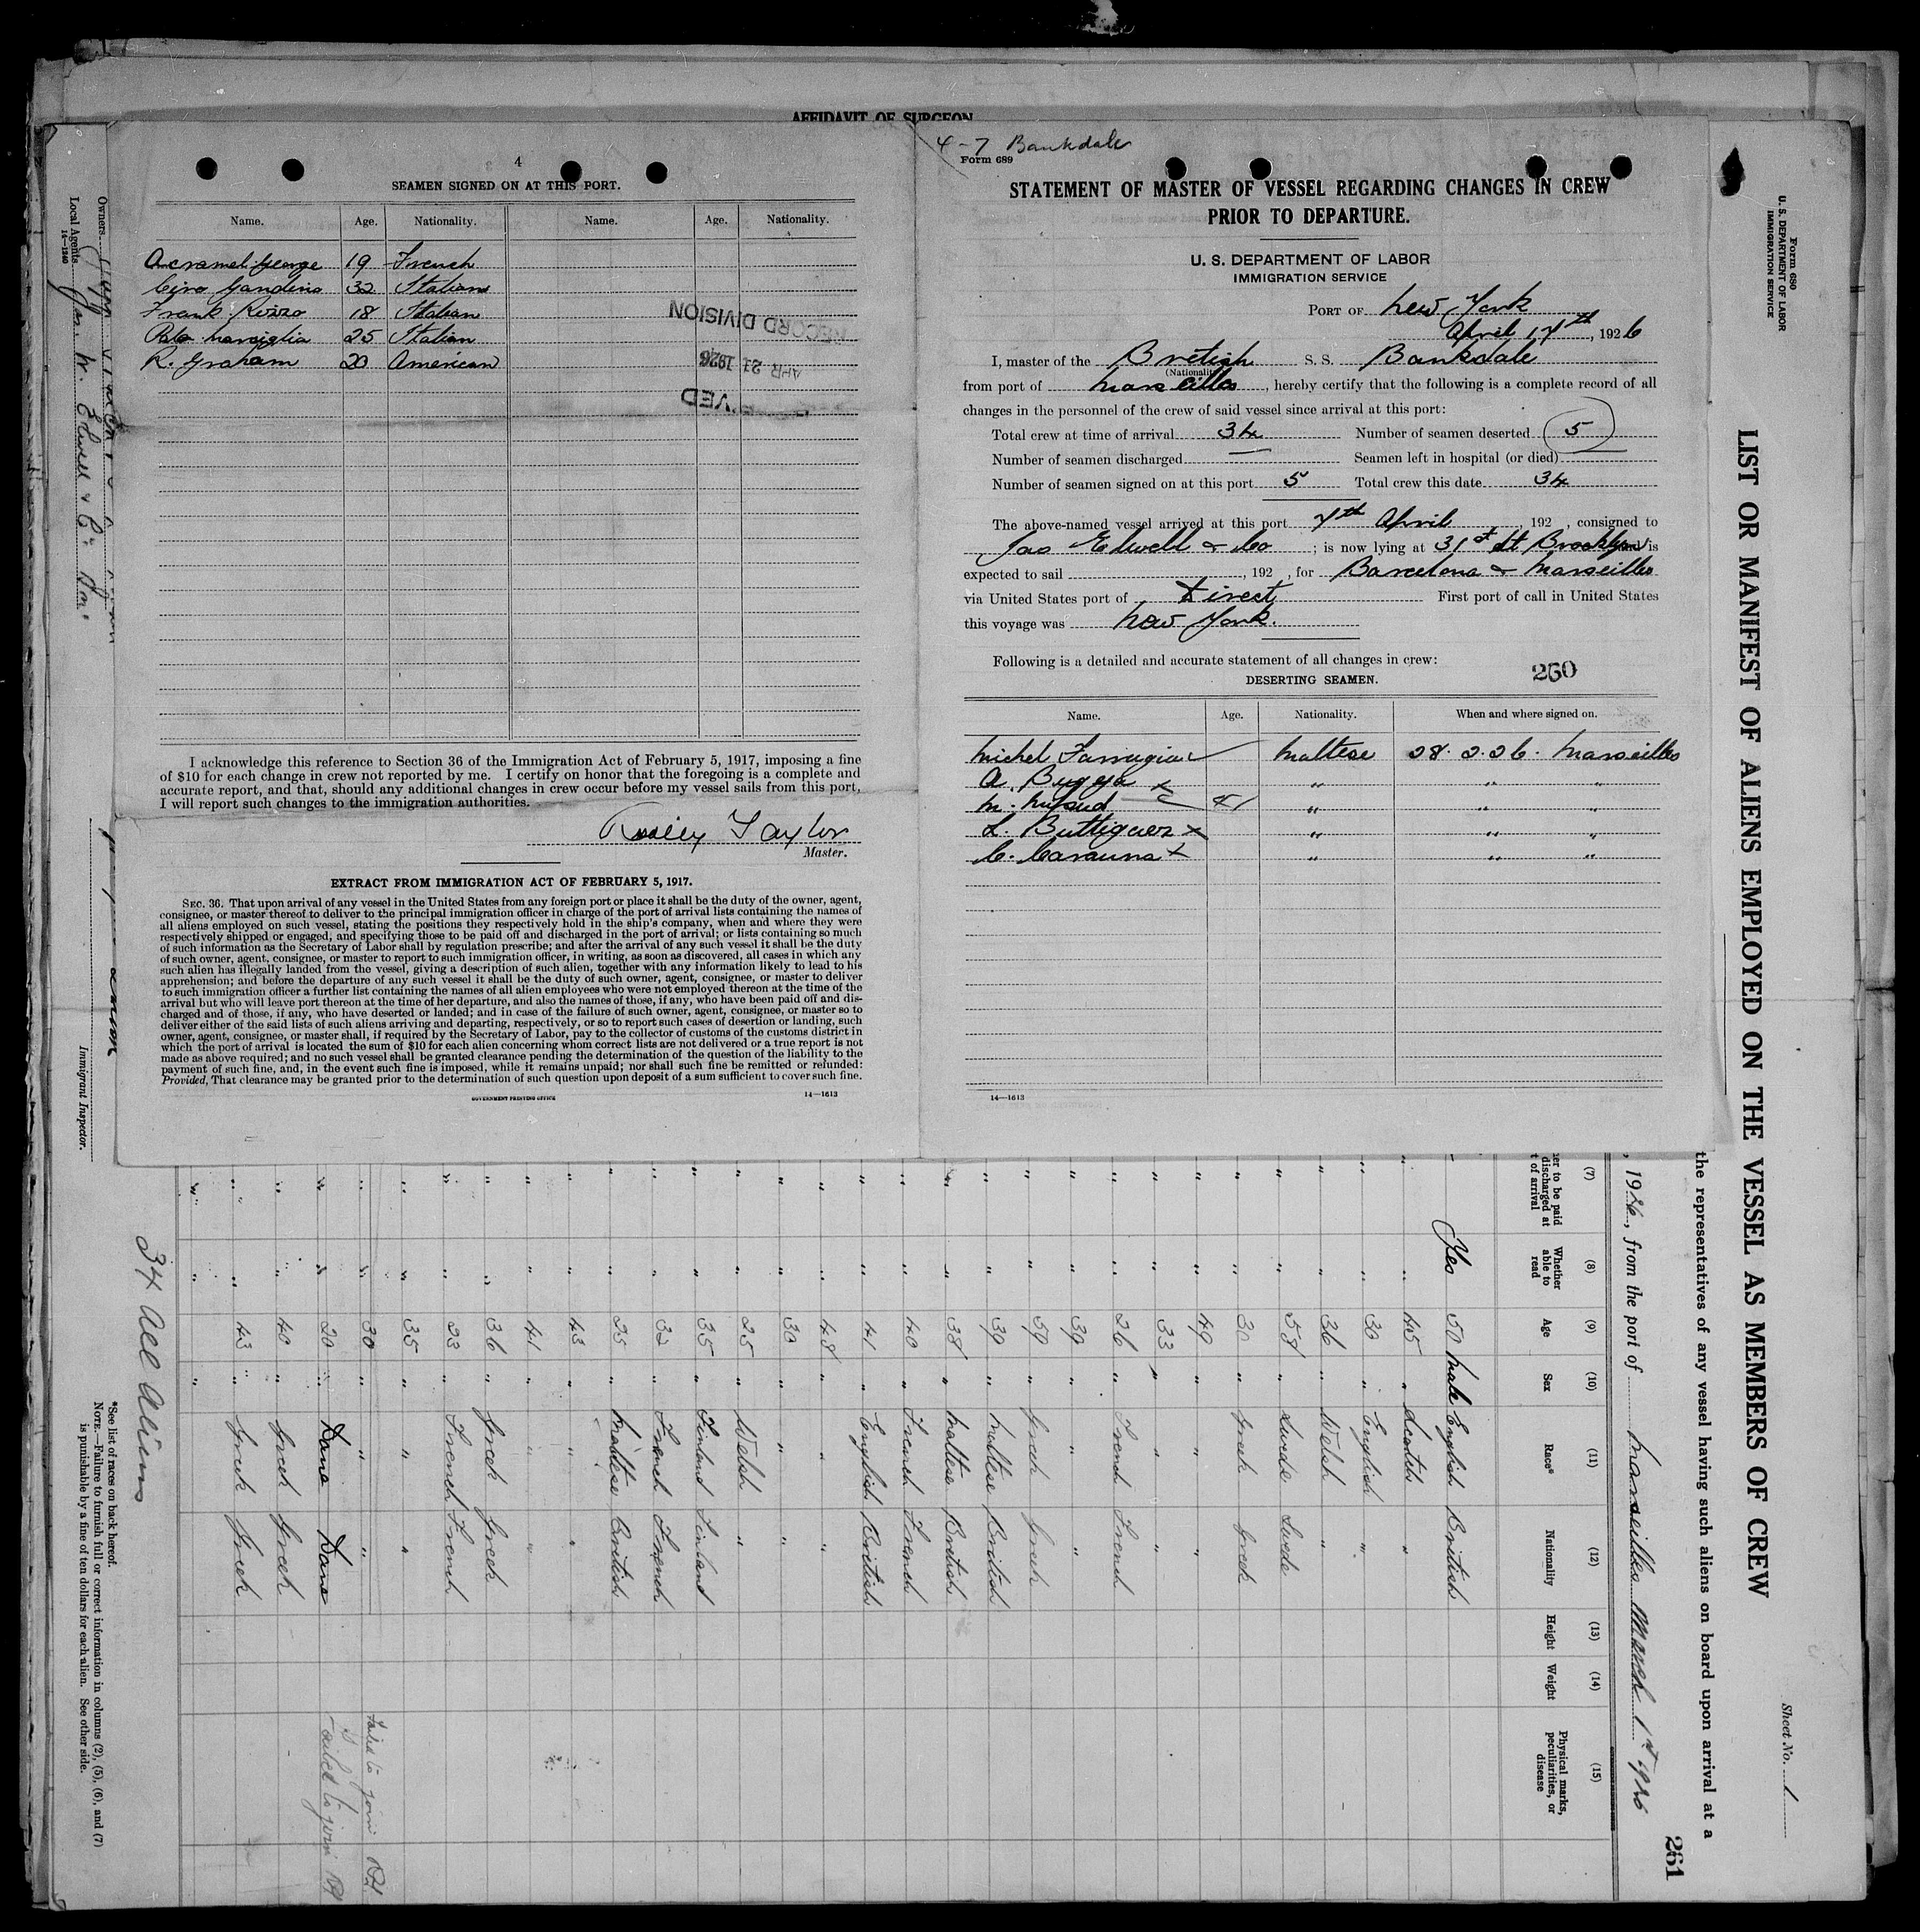 AFFIDAVIT OF SURGEON
4
SEAMEN SIGNED ON AT THIS PORT.
Name. Age. Nationality. Name. Age. Nationality.
Acramel George 19 French
Ciro Gandino 32 Italian
Frank Rizzo 18 Italian
25 Italian
R. Graham 20 American
RECORD DIVISION
APR 21 1926
I acknowledge this reference to Section 36 of the Immigration Act of February 5, 1917, imposing a fine
of $10 for each change in crew not reported by me. I certify on honor that the foregoing is a complete and
accurate report, and that, should any additional changes in crew occur before my vessel sails from this port,
I will report such changes to the immigration authorities.
Taylor
Master.
EXTRACT FROM IMMIGRATION ACT OF FEBRUARY 5, 1917.
SEC. 36. That upon arrival of any vessel in the United States from any foreign port or place it shall be the duty of the owner, agent,
consignee, or master thereof to deliver to the principal immigration officer in charge of the port of arrival lists containing the names of
all aliens employed on such vessel, stating the positions they respectively hold in the ship's company, when and where they were
respectively shipped or engaged, and specifying those to be paid off and discharged in the port of arrival; or lists containing so much
of such information as the Secretary of Labor shall by regulation prescribe; and after the arrival of any such vessel it shall be the duty
of such owner, agent, consignee, or master to report to such immigration officer, in writing, as soon as discovered, all cases in which any
such alien has illegally landed from the vessel, giving a description of such alien, together with any information likely to lead to his
apprehension; and before the departure of any such vessel it shall be the duty of such owner, agent, consignee, or master to deliver
to such immigration officer a further list containing the names of all alien employees who were not employed thereon at the time of the
arrival but who will leave port thereon at the time of her departure, and also the names of those, if any, who have been paid off and dis-
charged and of those, if any, who have deserted or landed; and in case of the failure of such owner, agent, consignee, or master so to
deliver either of the said lists of such aliens arriving and departing, respectively, or so to report such cases of desertion or landing, such
owner, agent, consignee, or master shall, if required by the Secretary of Labor, pay to the collector of customs of the customs district in
which the port of arrival is located the sum of $10 for each alien concerning whom correct lists are not delivered or a true report is not
made as above required; and no such vessel shall be granted clearance pending the determination of the question of the liability to the
payment of such fine, and, in the event such fine is imposed, while it remains unpaid; nor shall such fine be remitted or refunded:
Provided, That clearance may be granted prior to the determination of such question upon deposit of a sum sufficient to cover such fine.
GOVERNMENT PRINTING OFFICE 14—1613
4-7 Bankdale
Form 689
STATEMENT OF MASTER OF VESSEL REGARDING CHANGES IN CREW
PRIOR TO DEPARTURE.
U. S. DEPARTMENT OF LABOR
IMMIGRATION SERVICE
PORT OF New York
April 17th, 1926
I, master of the British S. S. Bankdale
(Nationality)
from port of Marseilles, hereby certify that the following is a complete record of all
changes in the personnel of the crew of said vessel since arrival at this port:
Total crew at time of arrival 34 Number of seamen deserted 5
Number of seamen discharged Seamen left in hospital (or died)
Number of seamen signed on at this port 5 Total crew this date 34
The above-named vessel arrived at this port 7th April, 192 , consigned to
Jas Elwell & Co ; is now lying at 31st St Brooklyn is
expected to sail , 192 , for Barcelona & Marseilles
via United States port of Direct First port of call in United States
this voyage was New York.
Following is a detailed and accurate statement of all changes in crew:
260
DESERTING SEAMEN.
Name. Age. Nationality. When and where signed on.
Michel Farrugia Maltese 28.2.26. Marseilles
A. Bugeja x " " "
M. Mifsud 41 " " "
L. Buttigieg x " " "
C. Caruana x " " "
14—1613
Form 680
U. S. DEPARTMENT OF LABOR
IMMIGRATION SERVICE
Sheet No. 1
LIST OR MANIFEST OF ALIENS EMPLOYED ON THE VESSEL AS MEMBERS OF CREW
the representatives of any vessel having such aliens on board upon arrival at a
261
, 1926, from the port of Marseilles March 1st 1926
(7) (8) (9) (10) (11) (12) (13) (14) (15)
er to be paid discharged at t of arrival
Whether able to read
Age
Sex
Race*
Nationality
Height
Weight
Physical marks, peculiarities, or disease
Yes 50 Male English British
" " 45 " Scotch "
" " 30 " English "
" " 36 " Welsh "
" " 58 " Swede Swede
" " 30 " Greek Greek
" " 49 " " "
" " 33 " " "
" " 26 " French French
" " 39 " " "
" " 59 " Greek Greek
" " 39 " Maltese British
" " 38 " Maltese British
" " 40 " French French
" " 41 " English British
" " 48 " " "
" " 30 " " "
" " 25 " Welsh "
" " 35 " Finland Finland
" " 32 " French French
" " 25 " Maltese British
" " 43 " " "
" " 41 " " "
" " 36 " Greek Greek
" " 23 " French French
" " 35 " " "
" " 30 " " " Failed to join
" " 20 " Dane Dane Failed to join
" " 40 " Greek Greek
" " 43 " Greek Greek
" " "
34 All Aliens
*See list of races on back hereof.
NOTE.—Failure to furnish full or correct information in columns (2), (5), (6), and (7)
is punishable by a fine of ten dollars for each alien. See other side.
Owners
Local Agents Jas. W. Elwell & Co. Inc.
14—1240
Immigrant Inspector.